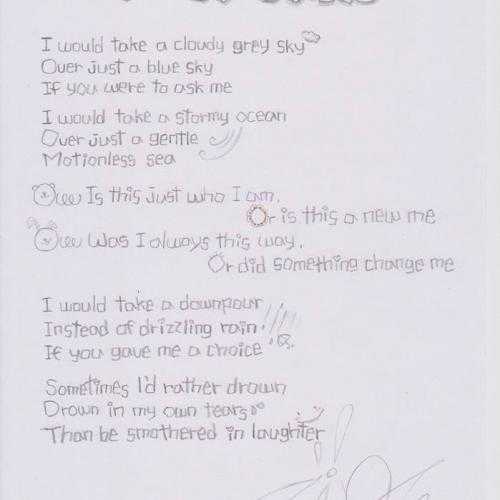 I would take a cloudy grey sky
Over just a blue sky
If you were to ask me
I would take a stormy ocean
Over just a gentle
Motionless sea
Is this just who I am,
Or is this a new me
Was I always this way,
Or did something change me
I would take a downpour
Instead of drizzling rain
If you gave me a choice
Sometimes I'd rather drown
Drown in my own tears
Than be smothered in laughter